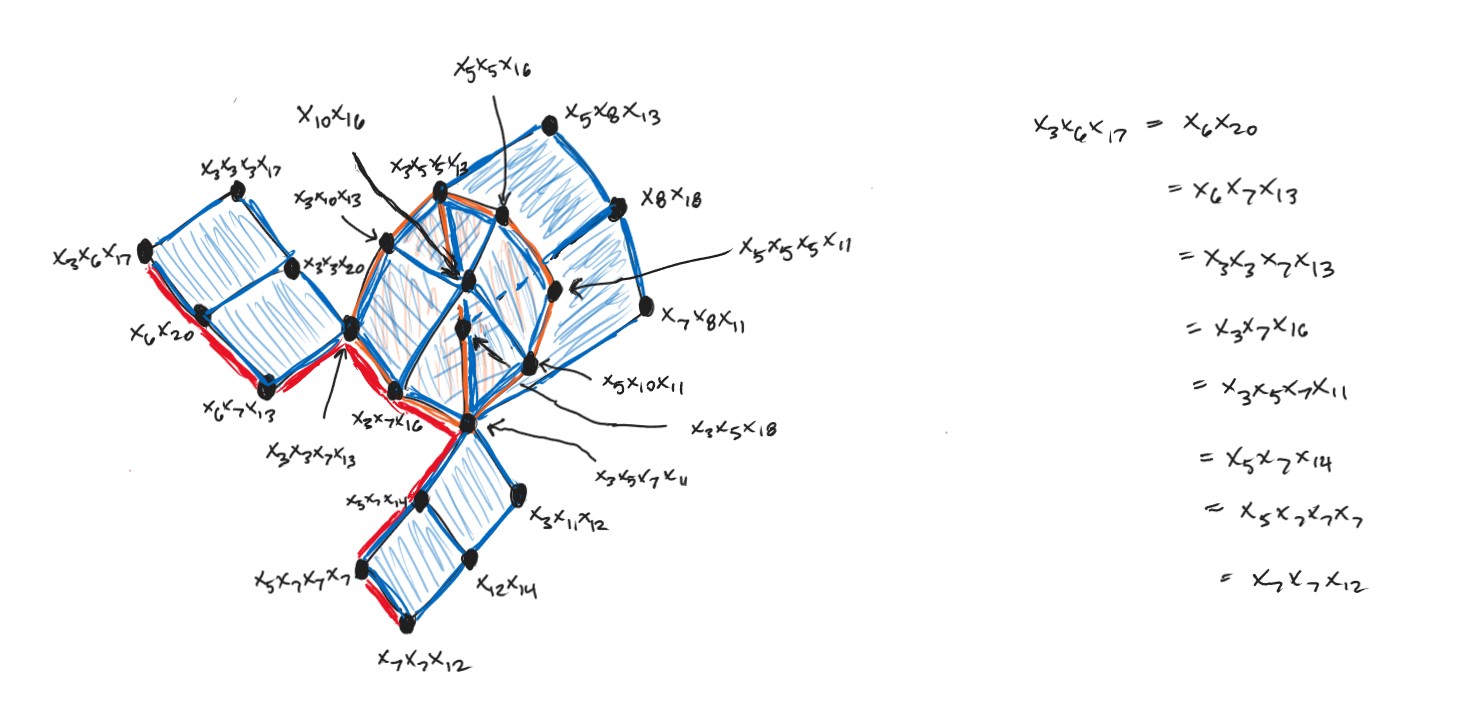 x₅x₅x₁₆
x₁₀x₁₆
x₅x₈x₁₃
x₃x₃x₃x₁₇
x₃x₅x₅x₁₃
x₃x₁₀x₁₃
x₈x₁₈
x₃x₆x₁₇
x₃x₃x₂₀
x₅x₅x₅x₁₁
x₆x₂₀
x₇x₈x₁₁
x₅x₁₀x₁₁
x₆x₇x₁₃
x₃x₇x₁₆
x₃x₅x₁₈
x₃x₃x₇x₁₃
x₃x₅x₇x₁₁
x₅x₇x₁₄
x₃x₁₁x₁₂
x₅x₇x₇x₇
x₁₂x₁₄
x₇x₇x₁₂
x₃x₆x₁₇ = x₆x₂₀
= x₆x₇x₁₃
= x₃x₃x₇x₁₃
= x₃x₇x₁₆
= x₃x₅x₇x₁₁
= x₅x₇x₁₄
= x₅x₇x₇x₇
= x₇x₇x₁₂